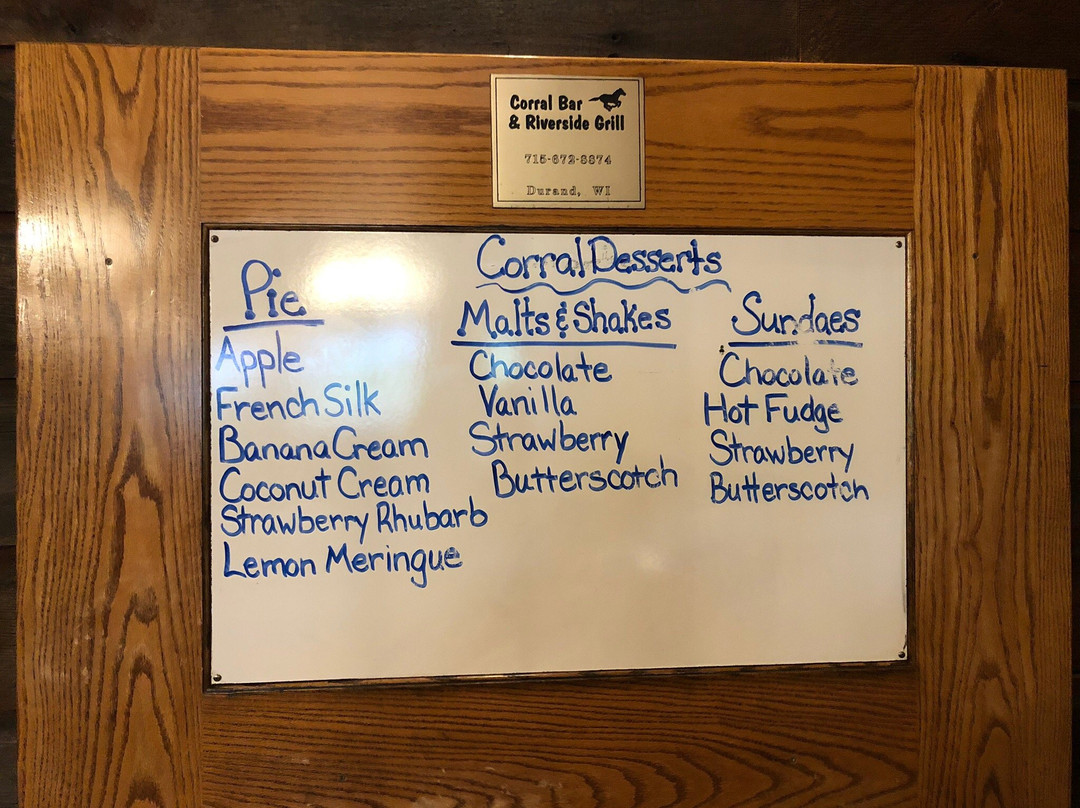 Corral Bar
& Riverside Grill
715-672-8874
Durand, WI
Corral Desserts
Pie
Apple
French Silk
Banana Cream
Coconut Cream
Strawberry Rhubarb
Lemon Meringue
Malts & Shakes
Chocolate
Vanilla
Strawberry
Butterscotch
Sundaes
Chocolate
Hot Fudge
Strawberry
Butterscotch